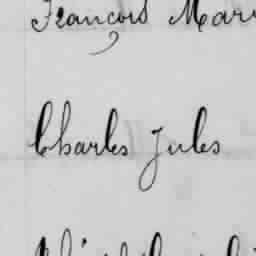 François Mari
Charles Jules